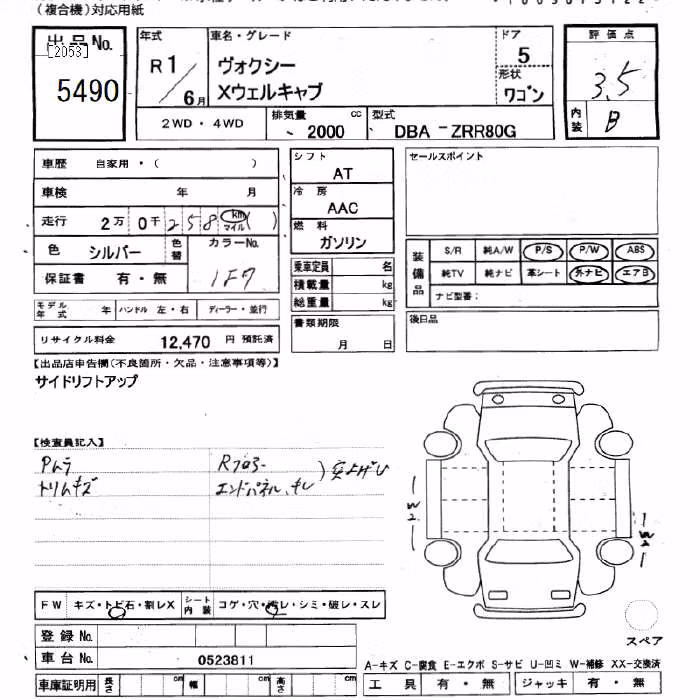 （複合機）対応用紙
出品No.
[2053]
5490
年式
R1
6月
車名・グレード
ヴォクシー
Xウェルキャブ
ドア
5
形状
ワゴン
評価点
3.5
内装
B
2WD・4WD
排気量
2000 cc
型式
DBA－ZRR80G
車歴 自家用・（ ）
車検 年 月
走行 2万 0千 258 km マイル ( )
色 シルバー 色替 カラーNo.
1F7
保証書 有・無
モデル年式 年 ハンドル 左・右 ディーラー・並行
リサイクル料金 12,470 円 預託済
シフト
AT
冷房
AAC
燃料
ガソリン
乗車定員 名
積載量 kg
総重量 kg
書類期限
月 日
セールスポイント
装備品
S/R 純A/W P/S P/W ABS
純TV 純ナビ 革シート 外ナビ エアB
ナビ型番：
後日品
【出品店申告欄(不良箇所・欠品・注意事項等)】
サイドリフトアップ
【検査員記入】
Pムラ
トリムキズ
Rフロアー
エンドパネル
突上げ
W2
W2
FW キズ・トビ石・割レX
シート内装 コゲ・穴・汚レ・シミ・破レ・スレ
登録No.
車台No. 0523811
車庫証明用 長さ cm 幅 cm 高さ cm
スペア
A-キズ C-腐食 E-エクボ S-サビ U-凹ミ W-補修 XX-交換済
工具 有・無 ジャッキ 有・無